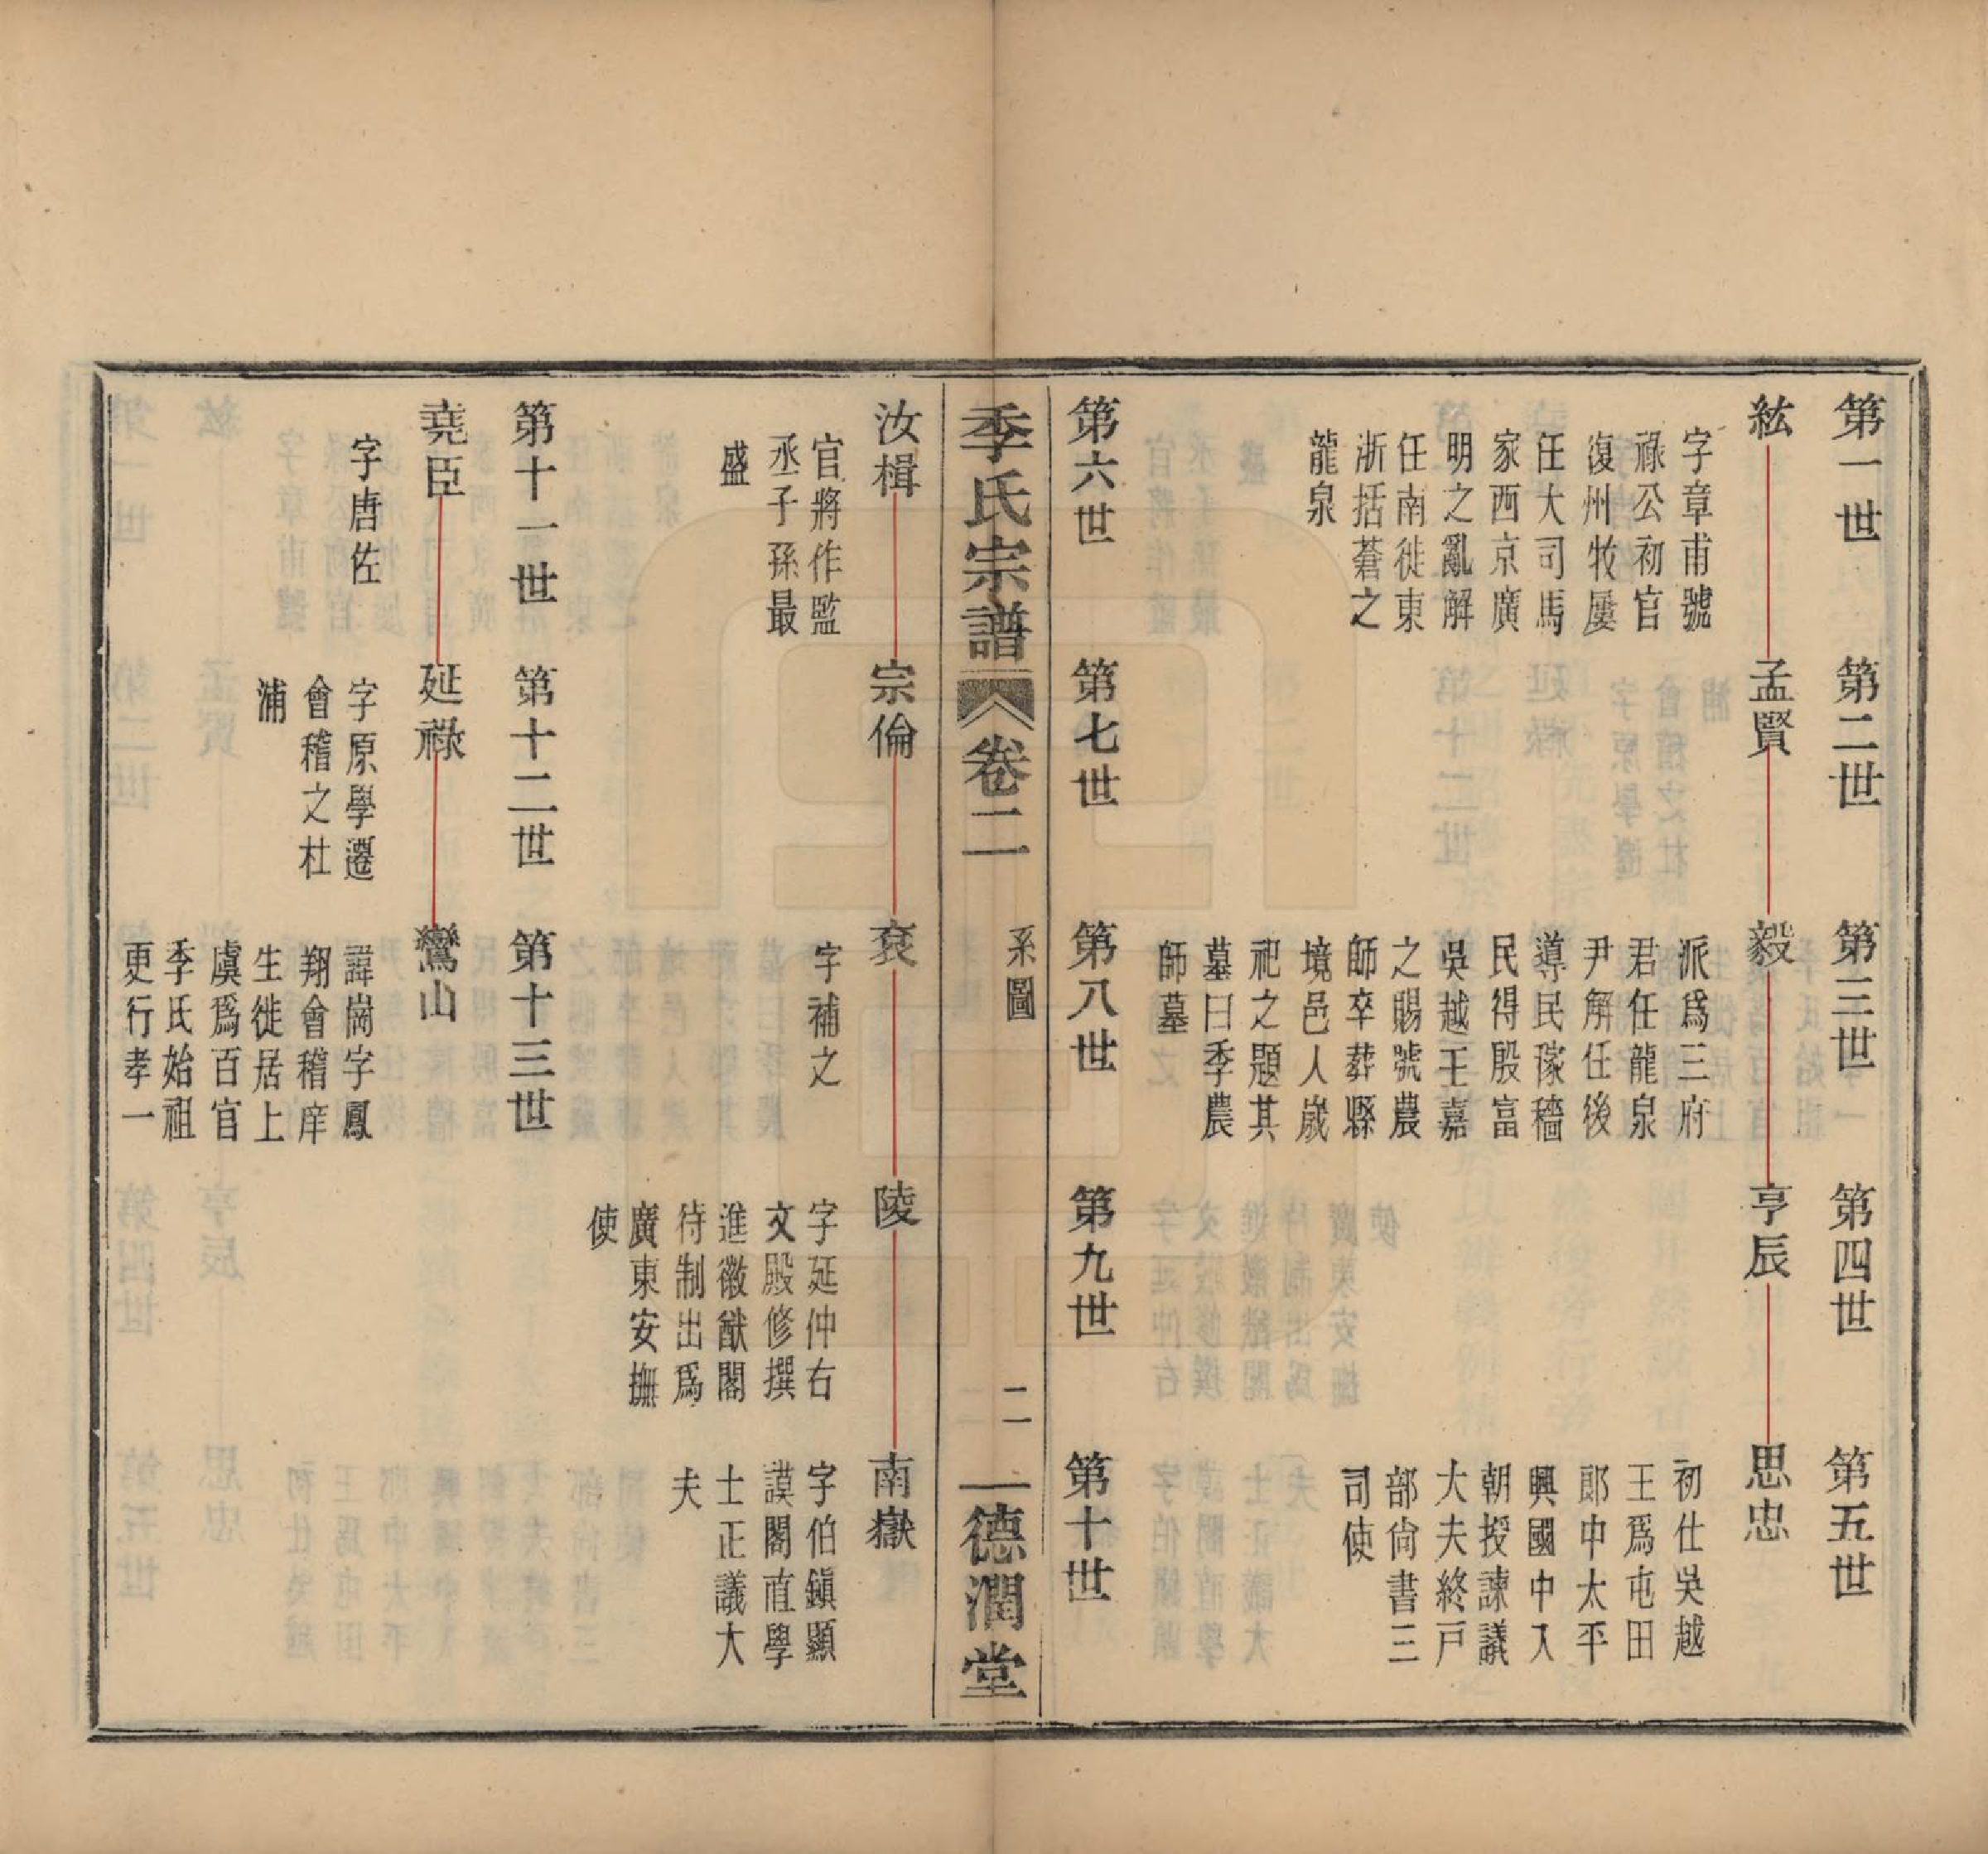 第一世
第二世
第三世
第四世
第五世
紘
孟賢
毅
亨辰
思忠
字章甫號
祿公初官
復州牧屢
任大司馬
家西京廣
明之亂解
任南徙東
浙括蒼之
龍泉
派爲三府
君任龍泉
尹解任後
導民稼穡
民得殷富
吳越王嘉
之賜號農
師卒葬縣
境邑人歲
祀之題其
墓曰季農
師墓
初仕吳越
王爲屯田
郎中太平
興國中入
朝授諫議
大夫終戸
部尙書三
司使
第六世
第七世
第八世
第九世
第十世
季氏宗譜
卷二
系圖
二
德潤堂
汝楫
宗倫
袞
陵
南嶽
官將作監
丞子孫最
盛
字補之
字延仲右
文殿修撰
進徽猷閣
待制出爲
廣東安撫
使
字伯鎭顯
謨閣直學
士正議大
夫
第十一世
第十二世
第十三世
堯臣
延祿
鸞山
字唐佐
字原學遷
會稽之杜
浦
諱崗字鳳
翔會稽庠
生徙居上
虞爲百官
季氏始祖
更行孝一